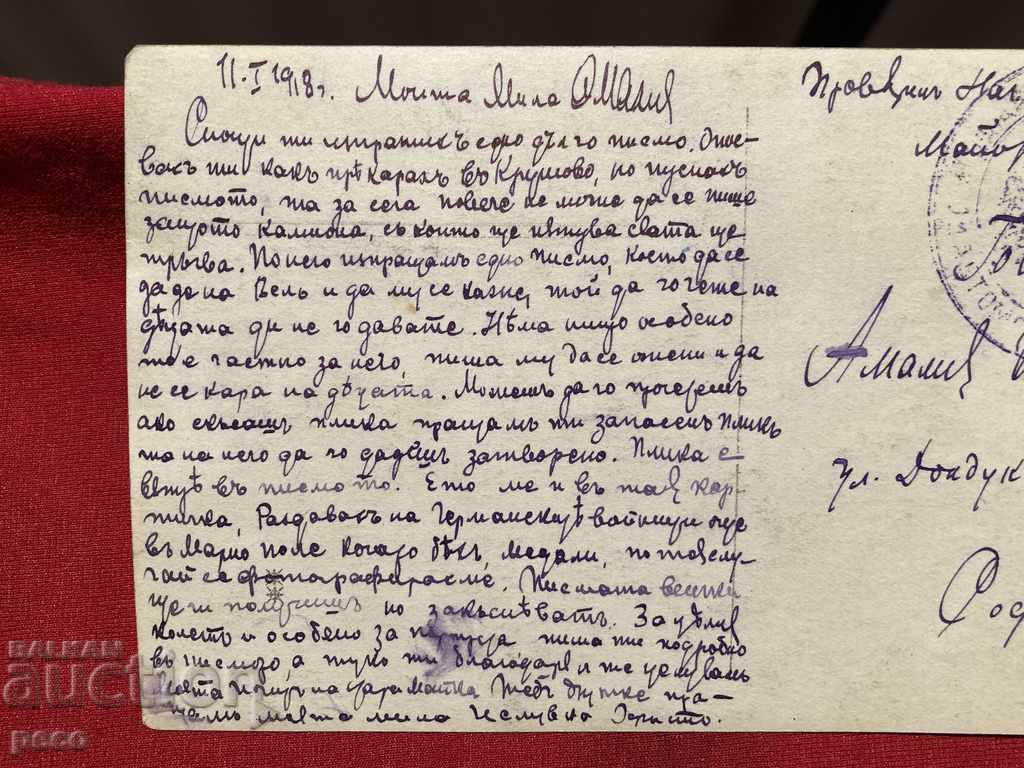 11.I 1918г. Моята Мила Амалия
Снощи ти изпратихъ едно дълго писмо. Опис-
вахъ ти какъ прѣкарахъ въ Крушово, но пуснахъ
писмото, та за сега повече не можно да се пише
защото камиона, съ който ще пѫтува свата ще
тръгва. По него изпращамъ едно писмо, което да се
даде на Вель и да му се каже, той да го чете на
дѣцата ди не го давате. Нѣма нищо особено
то е частно за него, пиша му да се опомни и да
не се кара на дѣцата. Можешъ да го прочетешъ
ако скъсашъ плика пращамъ ти запасенъ пликъ
та на него да го дадешъ затворено. Плика е
вѫтрѣ въ писмото. Ето ме и въ тая кар-
тичка, Раздавахъ на Германскитѣ войници още
въ Марио поле когато бѣхъ, медали, по той слу-
чай се фотографирахме. Писмата всички
ще ги получишъ но закъсняватъ. За
колето и особено за пиша ти подробно
въ писмото, а туко ти благодаря и те целувамъ
моята и на Мама Тебъ пра-
щамъ моята мила целувка Христо.
Провѣрилъ Нач
Майор
АВТОМО
Амалия
ул. Дондук
Соф
BALKAN
auction
peco